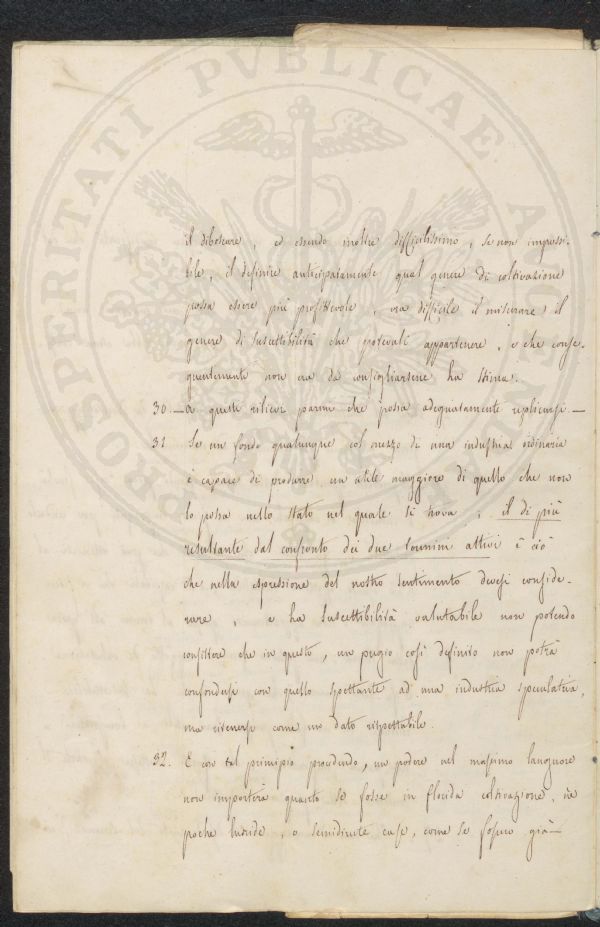 il diboscare, ed essendo inoltre difficilissimo, se non impossi-
bile, il definire anticipatamente qual genere di coltivazione
possa essere più profittevole, era difficile il misurare il
genere di suscettibilità che potevali appartenere, e che conse-
guentemente non era da consigliarsene la stima.
30.— A questi rilievi parmi che possa adeguatamente replicarsi —
31 Se un fondo qualunque col mezzo di una industria ordinaria
è capace di produrre un utile maggiore di quello che non
lo possa nello stato nel quale si trova; il di più
resultante dal confronto dei due termini attivi è ciò
che nella espressione del nostro sentimento devesi conside-
rare, e la suscettibilità valutabile non potendo
consistere che in questo, un pregio così definito non potrà
confondersi con quello spettante ad una industria speculativa,
ma ritenersi come un dato rispettabile.
32. E con tal principio procedendo, un podere nel massimo languore
non importerà quanto se fosse in florida coltivazione, nè
poche luride, o semidirute case, come se fossero già —
PROSPERITATI PVBLICAE